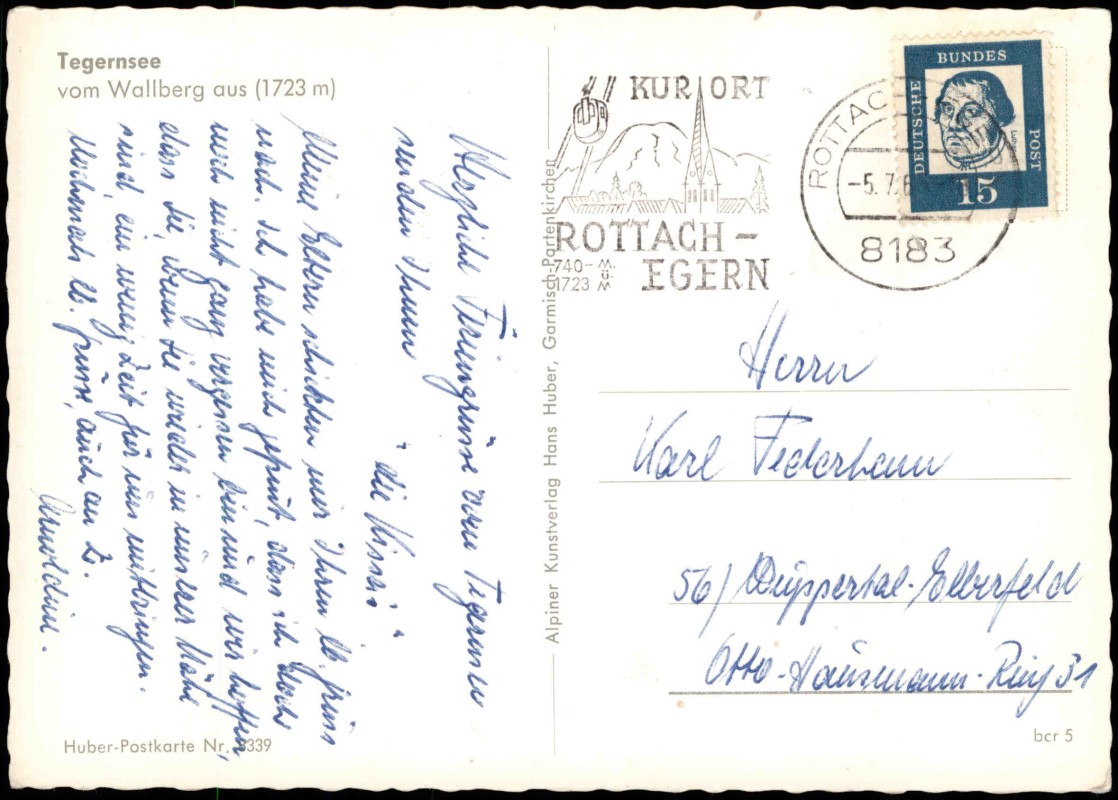 Tegernsee
vom Wallberg aus (1723 m)
Herzliche Feriengrüsse vom Tegernsee
senden Ihnen
"die Kissis"
Meine Eltern schickten mir Ihren lb. Gruss
nach. Ich habe mich gefreut, dass ich doch
noch nicht ganz vergessen bin und wir hoffen,
dass Sie, wenn Sie wieder in unserer Nähe
sind, ein wenig Zeit für uns mitbringen.
Nochmals lb. Grüsse, auch an
Huber-Postkarte Nr. 8339
Alpiner Kunstverlag Hans Huber, Garmisch-Partenkirchen
KURORT
ROTTACH-
EGERN
740-
1723
M.
ü.
M
ROTTACH-
-5.7.6
8183
DEUTSCHE
BUNDES
POST
15
Herrn
Karl Federhenn
56/ Wuppertal-Elberfeld
Otto-Hausmann-Ring 31
bcr 5